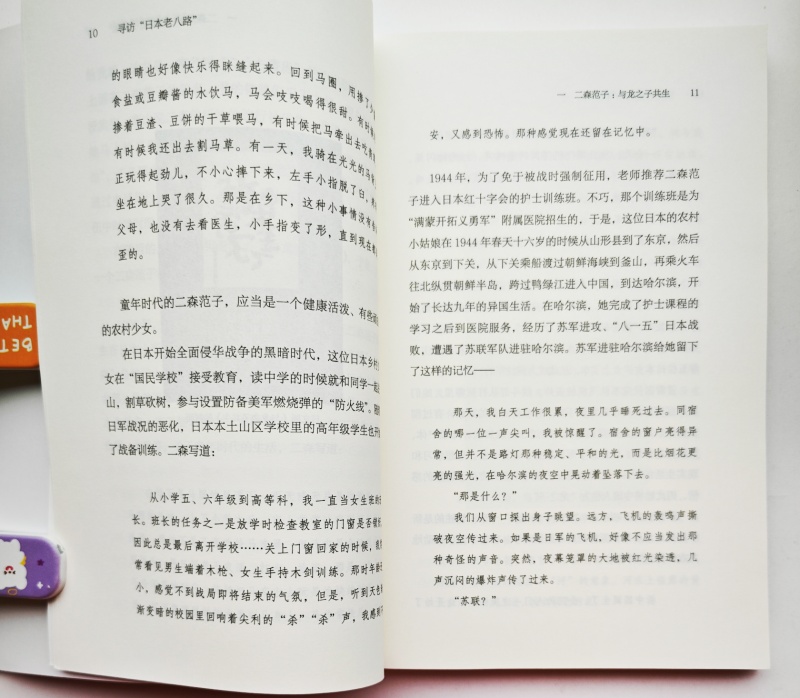 10 寻访“日本老八路”
的眼睛也好像快乐得眯缝起来。回到马圈，用掺了
食盐或豆瓣酱的水饮马，马会吱吱喝得很甜。有时
掺着豆渣、豆饼的干草喂马，有时候把马牵出去吃
有时候我还出去割马草。有一天，我骑在光光的马
正玩得起劲儿，不小心摔下来，左手小指脱了臼，
坐在地上哭了很久。那是在乡下，这种小事情没有
父母，也没有去看医生，小手指变了形，直到现在
歪的。
童年时代的二森范子，应当是一个健康活泼、有些
的农村少女。
在日本开始全面侵华战争的黑暗时代，这位日本乡村
女在“国民学校”接受教育，读中学的时候就和同学一起
山，割草砍树，参与设置防备美军燃烧弹的“防火线”。
日军战况的恶化，日本本土山区学校里的高年级学生也开
了战备训练。二森写道：
从小学五、六年级到高等科，我一直当女生班的
长。班长的任务之一是放学时检查教室的门窗是否锁
因此总是最后离开学校……关上门窗回家的时候，
常看见男生端着木枪、女生手持木剑训练。那时年龄
小，感觉不到战局即将结束的气氛，但是，听到天色
渐变暗的校园里回响着尖利的“杀”“杀”声，我感到
一 二森范子：与龙之子共生 11
安，又感到恐怖。那种感觉现在还留在记忆中。
1944年，为了免于被战时强制征用，老师推荐二森范
子进入日本红十字会的护士训练班。不巧，那个训练班是为
“满蒙开拓义勇军”附属医院招生的，于是，这位日本的农村
小姑娘在1944年春天十六岁的时候从山形县到了东京，然后
从东京到下关，从下关乘船渡过朝鲜海峡到釜山，再乘火车
往北纵贯朝鲜半岛，跨过鸭绿江进入中国，到达哈尔滨，开
始了长达九年的异国生活。在哈尔滨，她完成了护士课程的
学习之后到医院服务，经历了苏军进攻、“八一五”日本战
败，遭遇了苏联军队进驻哈尔滨。苏军进驻哈尔滨给她留下
了这样的记忆——
那天，我白天工作很累，夜里几乎睡死过去。同宿
舍的哪一位一声尖叫，我被惊醒了。宿舍的窗户亮得异
常，但并不是路灯那种稳定、平和的光，而是比烟花更
亮的强光，在哈尔滨的夜空中晃动着坠落下去。
“那是什么？”
我们从窗口探出身子眺望。远方，飞机的轰鸣声撕
破夜空传过来。如果是日军的飞机，好像不应当发出那
种奇怪的声音。突然，夜幕笼罩的大地被红光染透，几
声沉闷的爆炸声传了过来。
“苏联？”